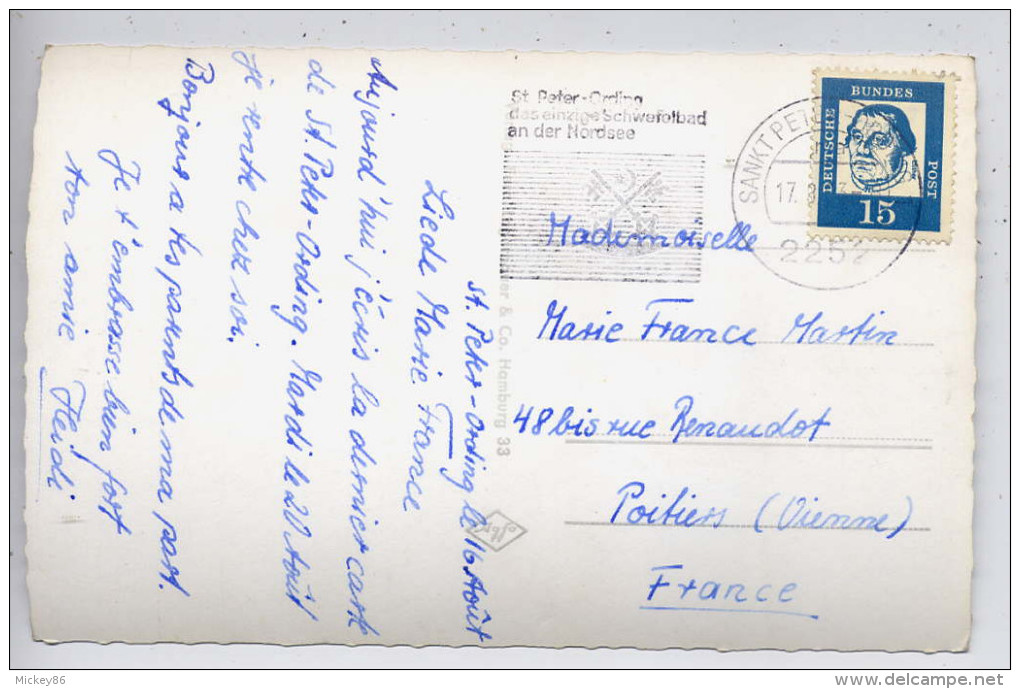 St. Peter-Ording le 16 Août
Liede Marie France
Aujourd'hui j'écris la dernier carte
de St. Peter-Ording. Mardi le 20 Août
je rentre chez soi.
Bonjours a tes parents de ma part.
Je t'embrasse bien fort
ton amie
Heidi
St. Peter-Ording
das einzige Schwefelbad
an der Nordsee
SANKT PETER-
17.
2252
DEUTSCHE BUNDES POST
15
Mademoiselle
Marie France Martin
48 bis rue Renaudot
Poitiers (Vienne)
France
& Co. Hamburg 33
Agfa
Mickey86
delcampe.net